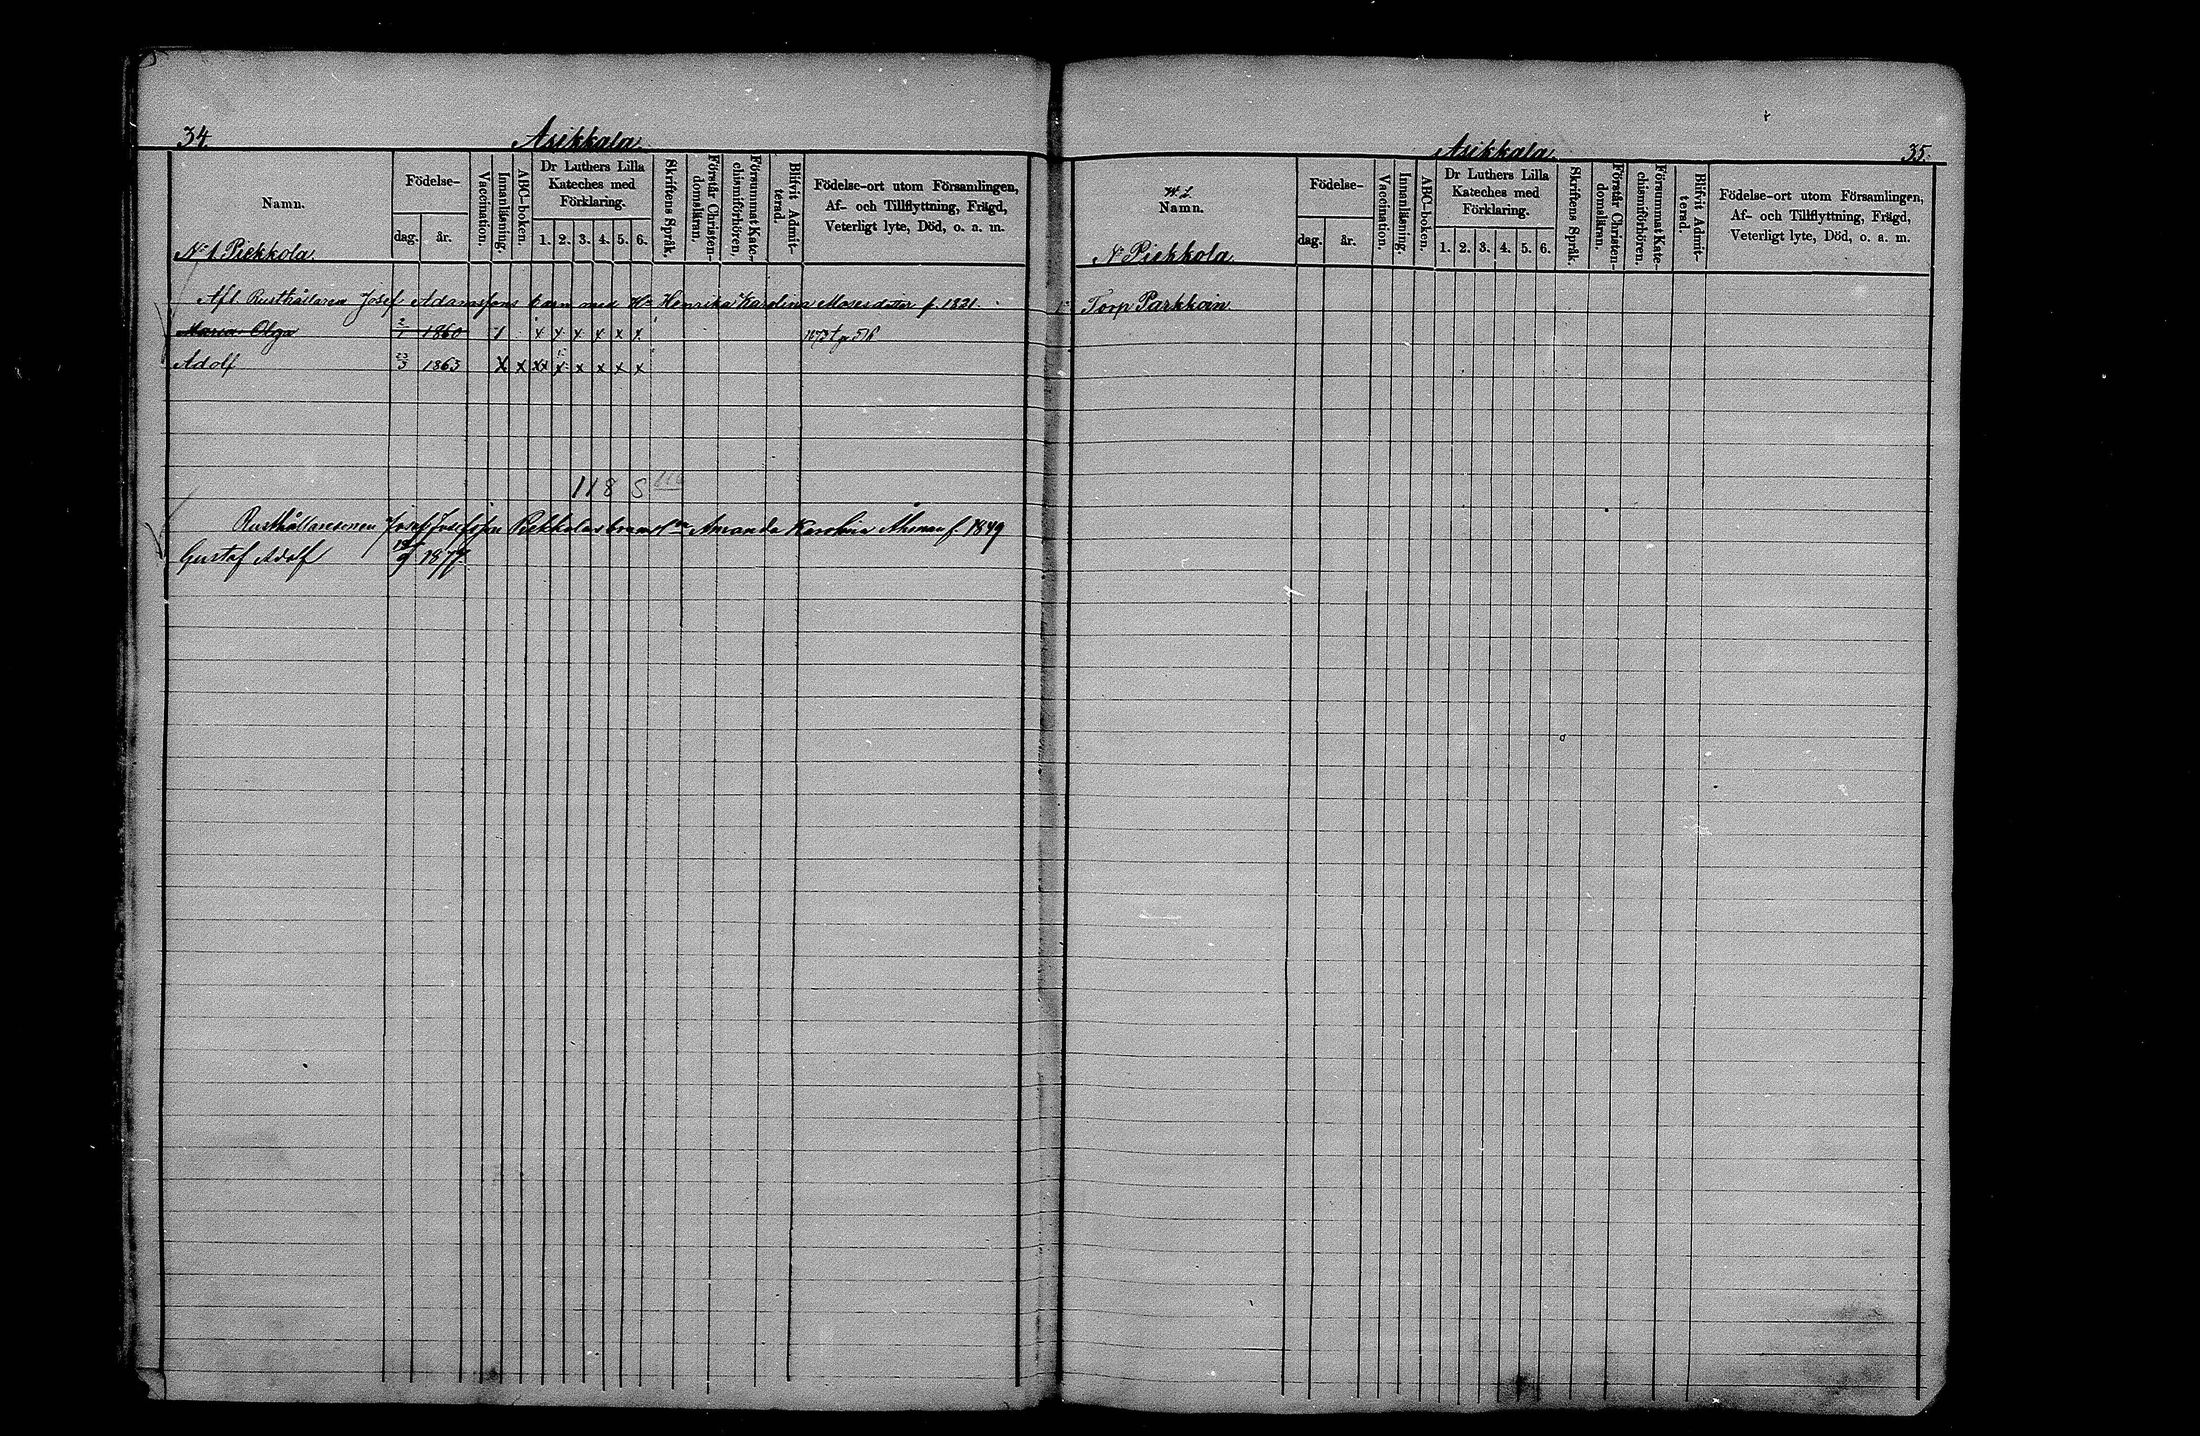 34.
Asikkala.
Namn.
Födelse-
dag. år.
Vaccination.
Innanläsning.
ABC-boken.
Dr Luthers Lilla
Kateches med
Förklaring.
1. 2. 3. 4. 5. 6.
Skriftens Språk.
Förstår Christen-
domsläran.
Försummat Kate-
chismiförhören.
Blifvit Admit-
terad.
Födelse-ort utom Församlingen,
Af- och Tillflyttning, Frägd,
Veterligt lyte, Död, o. a. m.
No 1 Piekkola
Afl. Rusthållaren Josef Adamssons barn med Ha Henrika Karolina Mosesdotter f. 1821.
Maria Olga 2/1 1860 1 x x x x x x
Adolf 23/3 1863 x x xx x x x x x
118 S
Rusthållaresonen Josef Josefsson barn Amanda Karolina f. 1849
Gustaf Adolf 1877.
Asikkala.
35.
Namn.
Födelse-
dag. år.
Vaccination.
Innanläsning.
ABC-boken.
Dr Luthers Lilla
Kateches med
Förklaring.
1. 2. 3. 4. 5. 6.
Skriftens Språk.
Förstår Christen-
domsläran.
Försummat Kate-
chismiförhören.
Blifvit Admit-
terad.
Födelse-ort utom Församlingen,
Af- och Tillflyttning, Frägd,
Veterligt lyte, Död, o. a. m.
No Piekkola
Torp Parkkoin